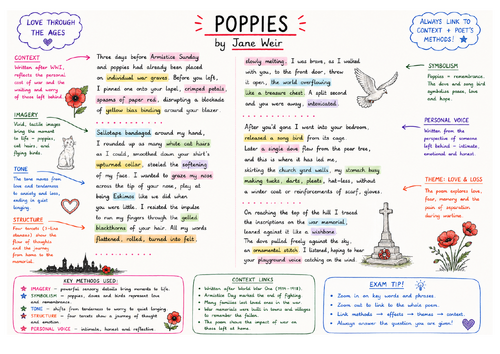 LOVE THROUGH
THE AGES
POPPIES
by Jane Weir
ALWAYS LINK TO
CONTEXT + POET'S
METHODS!
CONTEXT
Written after WWI,
reflects the personal
cost of war and the
waiting and worry
of those left behind.
IMAGERY
Vivid, tactile images
bring the moment
to life – poppies,
cat hairs, and
flying birds.
TONE
The tone moves from
love and tenderness
to anxiety and loss,
ending in quiet
longing.
STRUCTURE
Four tercets (3-line
stanzas) show the
flow of thoughts
and the journey
from home to the
memorial.
Three days before Armistice Sunday
and poppies had already been placed
on individual war graves. Before you left,
I pinned one onto your lapel, crimped petals,
spasms of paper red, disrupting a blockade
of yellow bias binding around your blazer.
Sellotape bandaged around my hand,
I rounded up as many white cat hairs
as I could, smoothed down your shirt's
upturned collar, steeled the softening
of my face. I wanted to graze my nose
across the tip of your nose, play at
being Eskimos like we did when
you were little. I resisted the impulse
to run my fingers through the gelled
blackthorns of your hair. All my words
flattened, rolled, turned into felt.
slowly melting. I was brave, as I walked
with you, to the front door, threw
it open, the world overflowing
like a treasure chest. A split second
and you were away, intoxicated.
After you'd gone I went into your bedroom,
released a song bird from its cage.
Later a single dove flew from the pear tree,
and this is where it has led me,
skirting the church yard walls, my stomach busy
making tucks, darts, pleats, hat-less, without
a winter coat or reinforcements of scarf, gloves.
On reaching the top of the hill I traced
the inscriptions on the war memorial,
leaned against it like a wishbone.
The dove pulled freely against the sky,
an ornamental stitch. I listened, hoping to hear
your playground voice catching on the wind.
SYMBOLISM
Poppies = remembrance.
The dove and song bird
symbolise peace, love
and hope.
PERSONAL VOICE
Written from the
perspective of someone
left behind – intimate,
emotional and honest.
THEME: LOVE & LOSS
The poem explores love,
fear, memory and the
pain of separation
during wartime.
KEY METHODS USED:
IMAGERY – powerful sensory details bring moments to life.
SYMBOLISM – poppies, doves and birds represent love
and remembrance.
TONE – shifts from tenderness to worry to quiet longing.
STRUCTURE – four tercets show a journey of thought
and emotion.
PERSONAL VOICE – intimate, honest and reflective
CONTEXT LINKS
Written after World War One (1914–1918).
Armistice Day marked the end of fighting.
Many families lost loved ones in the war.
War memorials were built in towns and villages
to remember the fallen.
The poem shows the impact of war on
those left at home.
EXAM TIP!
Zoom in on key words and phrases.
Zoom out to link to the whole poem.
Link methods → effects → themes → context.
Always answer the question you are given!